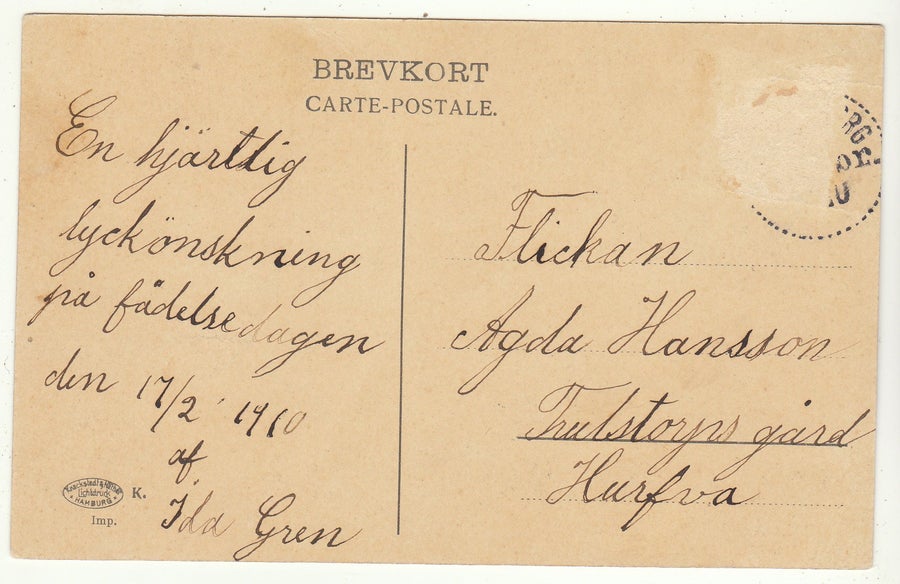 BREVKORT
CARTE-POSTALE.
En hjärtlig
lyckönskning
på fädelsedagen
den 17/2 1910
af
Ida Gren
Knackstedt & Näther
Lichtdruck
HAMBURG
K.
Imp.
RG
10
Flickan
Agda Hansson
Trulstorps gård
Hurfva